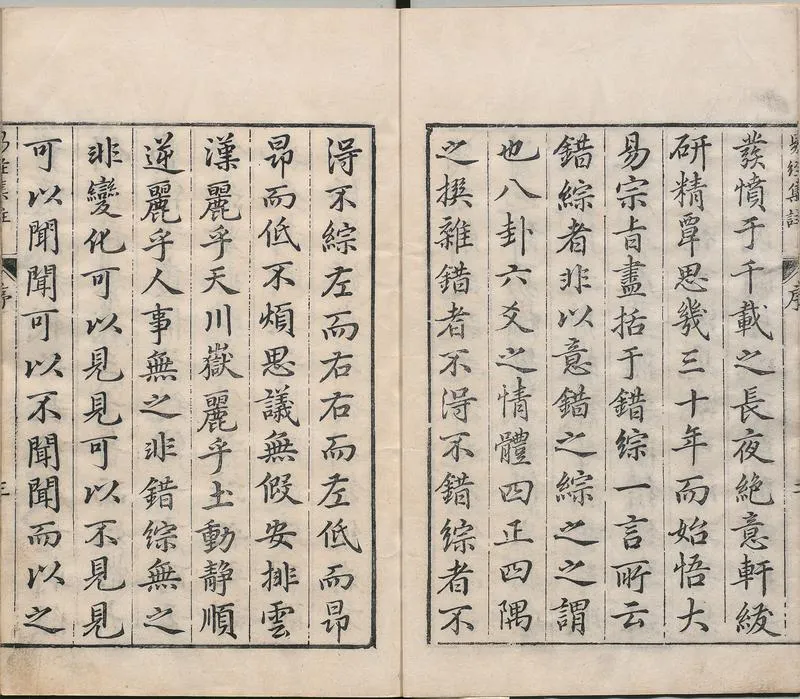 易經集註
序
發憤于千載之長夜絶意軒紱
研精覃思幾三十年而始悟大
易宗旨盡括于錯綜一言所云
錯綜者非以意錯之綜之之謂
也八卦六爻之情體四正四隅
之撰雜錯者不得不錯綜者不
得不綜左而右右而左低而昂
昂而低不煩思議無假安排雲
漢麗乎天川嶽麗乎土動静順
逆麗乎人事無之非錯綜無之
非變化可以見見可以不見見
可以聞聞可以不聞聞而以之
易經集註
序
三